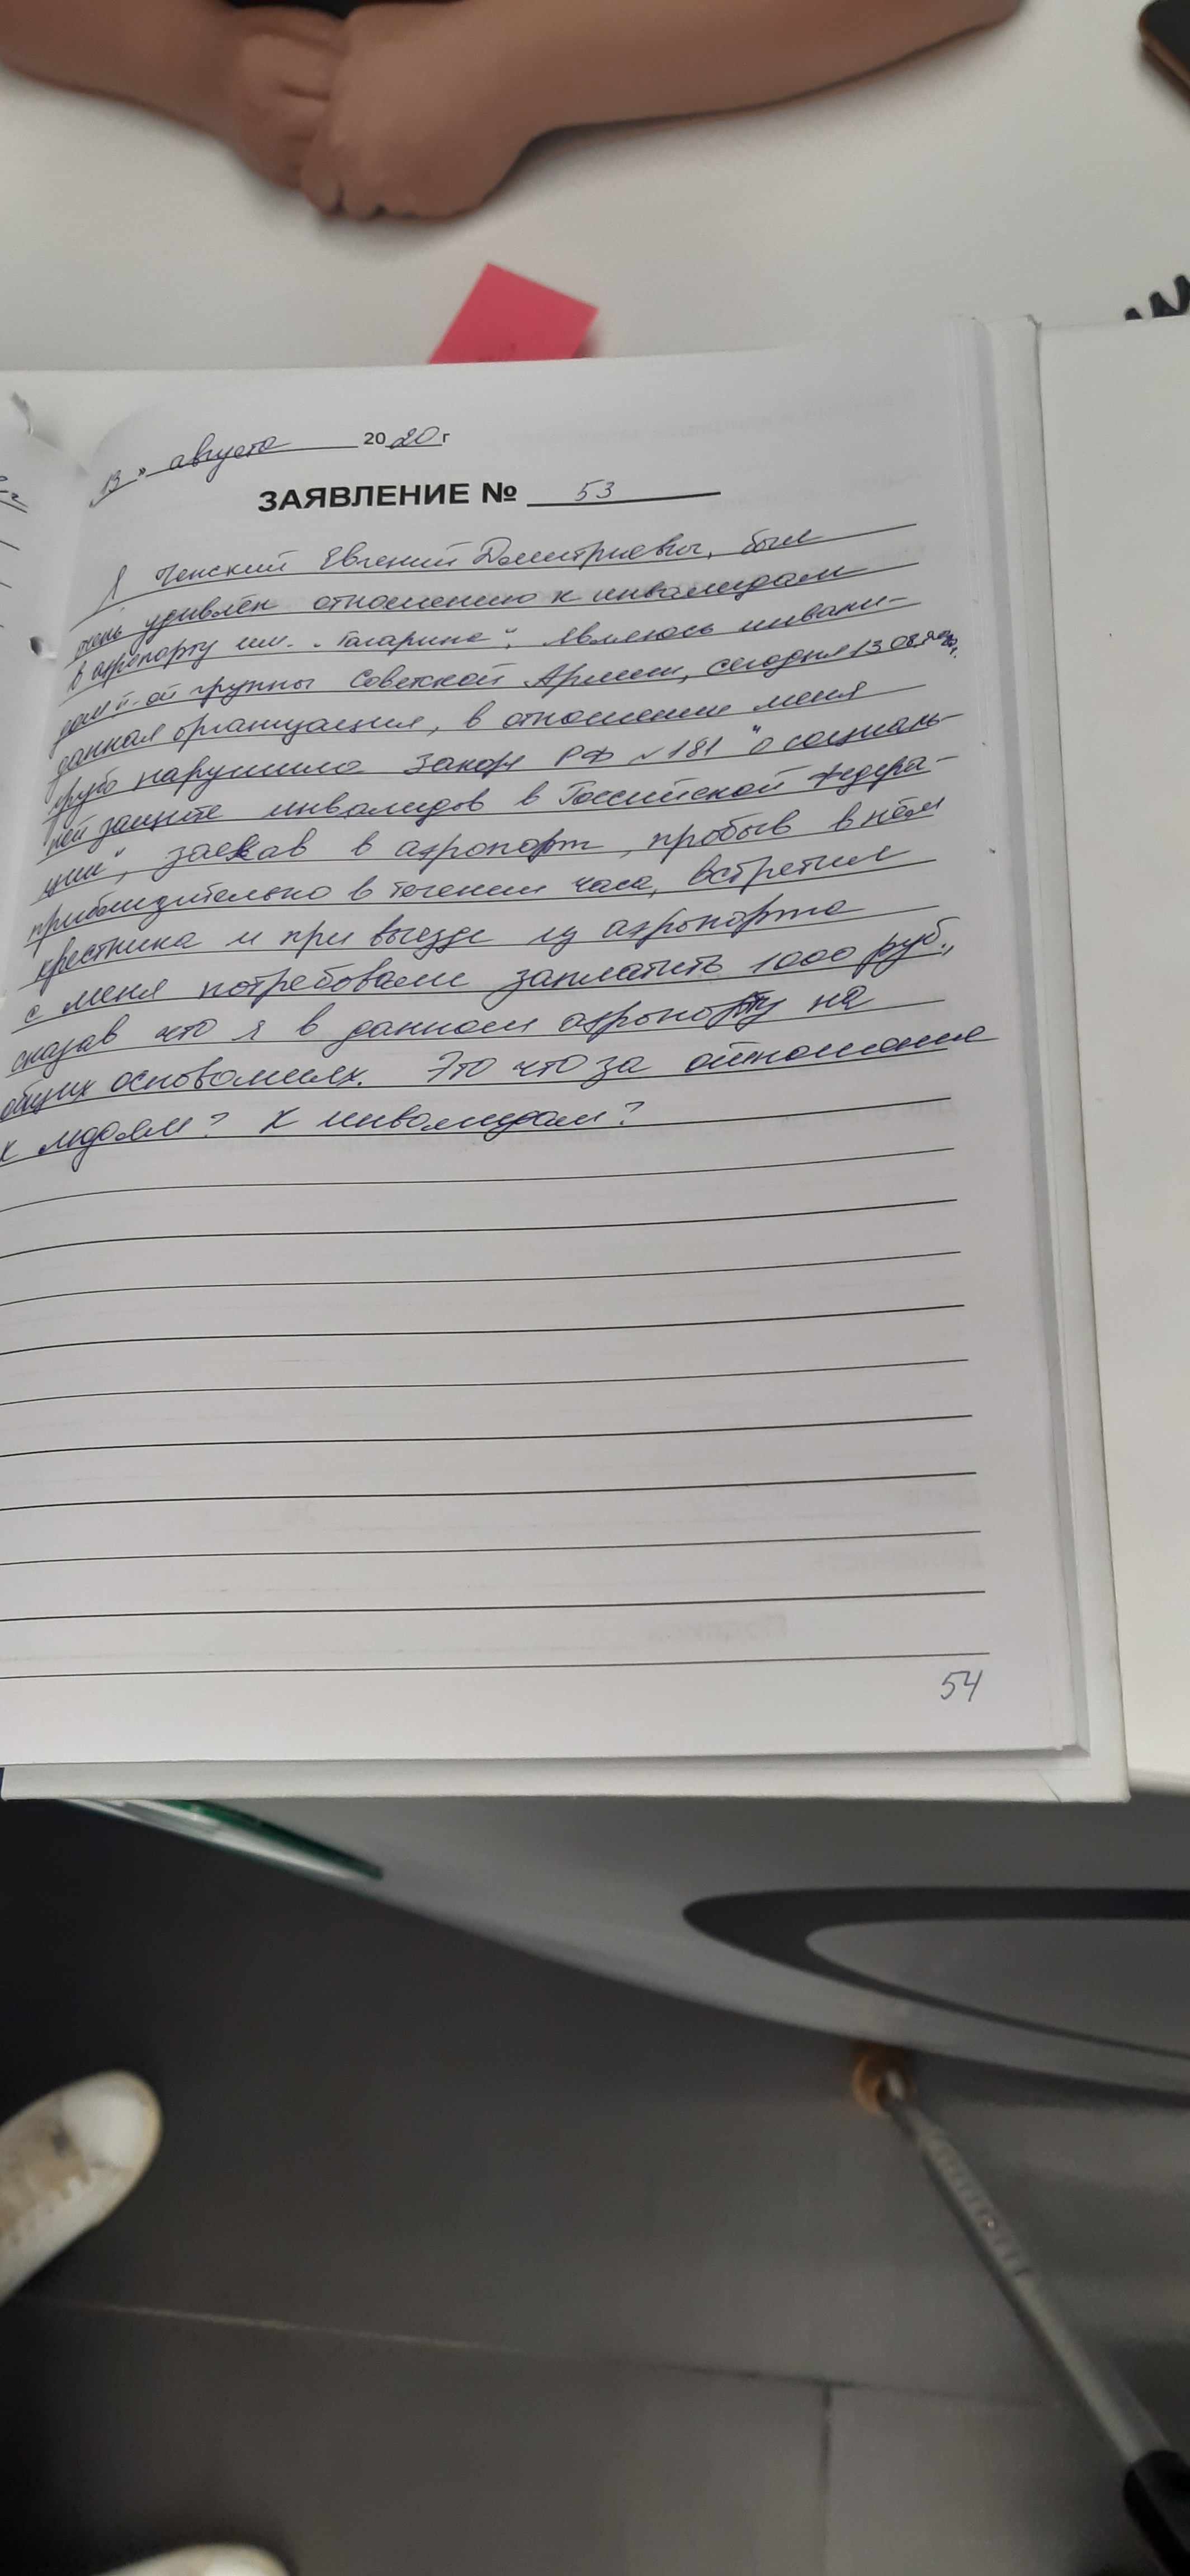 13 » августа 2020 г
ЗАЯВЛЕНИЕ № 53
Я Ченский Евгений Дмитриевич, был
очень удивлён отношению к инвалидам
в аэропорту им. "Гагарина". Являюсь инвали-
дом II-ой группы Советской Армии, сегодня 13.08.2020г.
данная организация, в отношении меня
грубо нарушила закон РФ №181 "О социаль-
ной защите инвалидов в Российской Федера-
ции", заехав в аэропорт, пробыв в нём
приблизительно в течении часа, встретил
крестника и при выезде из аэропорта
с меня потребовали заплатить 1000 руб.,
сказав что я в данном аэропорту на
общих основаниях. Это что за отношение
к людям? К инвалидам?
54